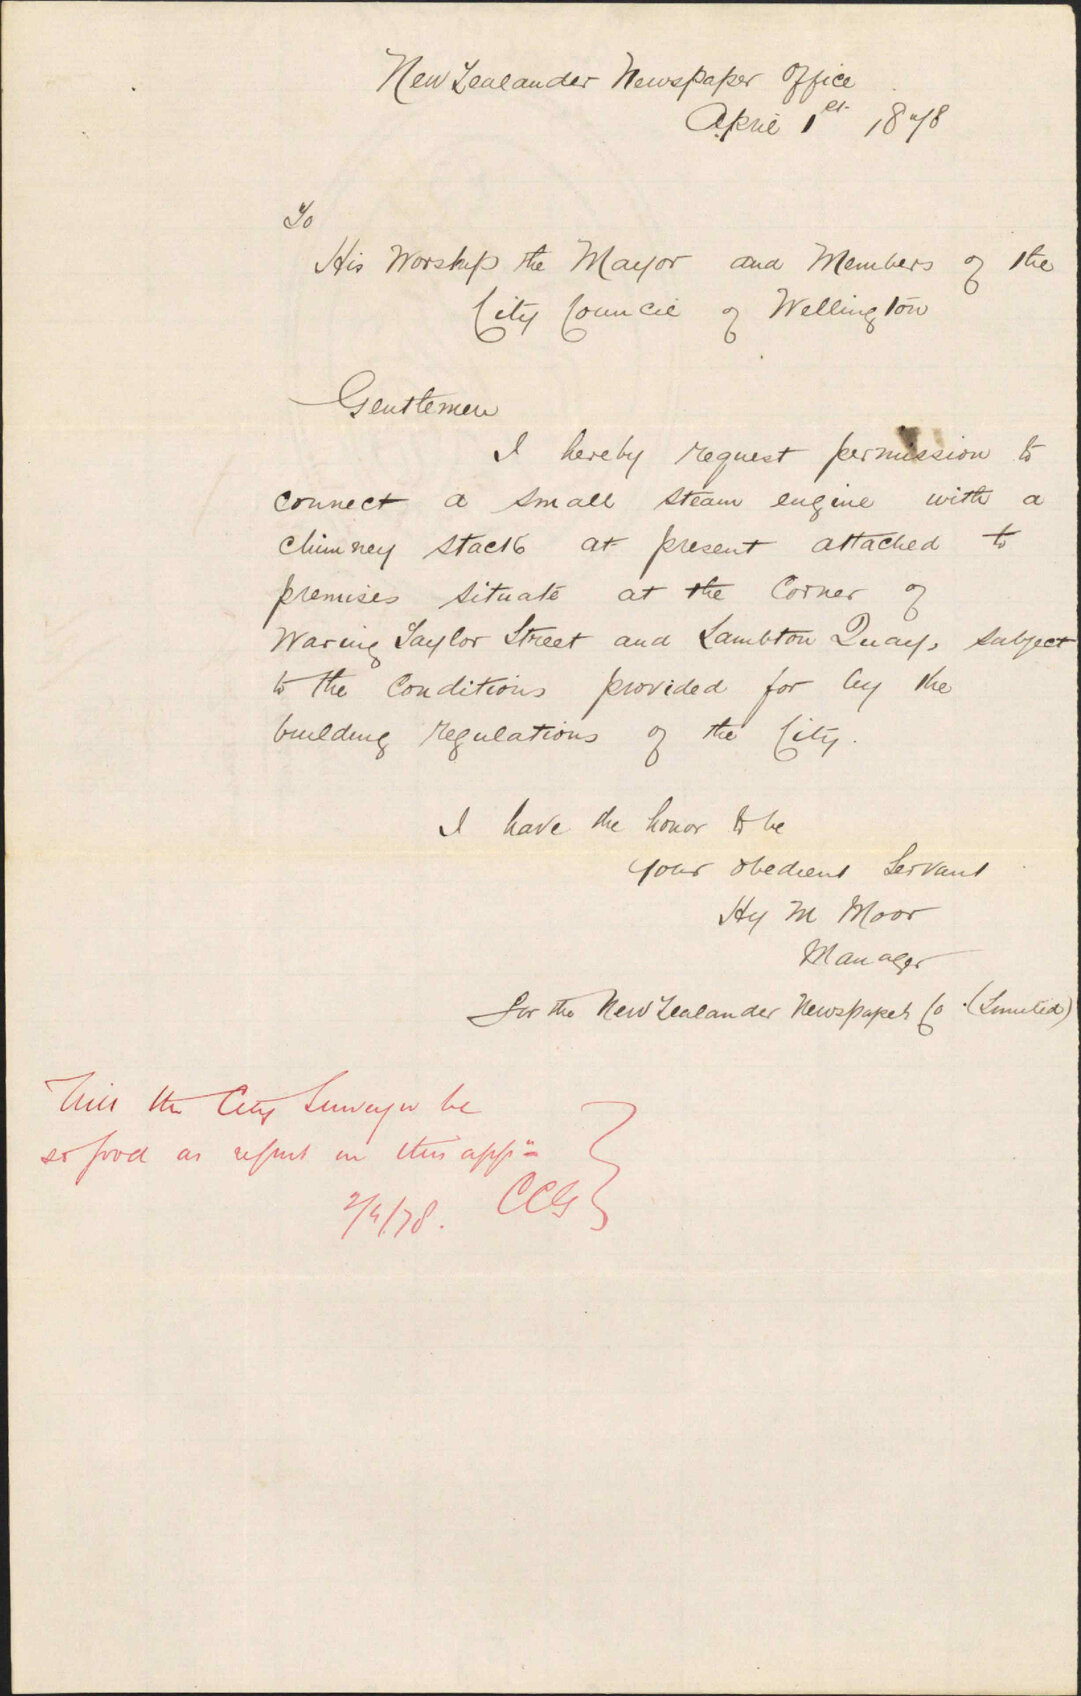 New Zealander Newspaper Office
April 1st 1878
To
His Worship the Mayor and Members of the
City Council of Wellington
Gentlemen
I hereby request permission to
connect a small steam engine with a
chimney stack at present attached to
premises situate at the Corner of
Waring Taylor Street and Lambton Quay, subject
to the Conditions provided for by the
building regulations of the City.
I have the honor to be
Your obedient Servant
Hy M Moor
Manager
for the New Zealander Newspaper Co. (Limited)
Will the City Surveyor be
so good as report on this appn
2/4/78. CCG